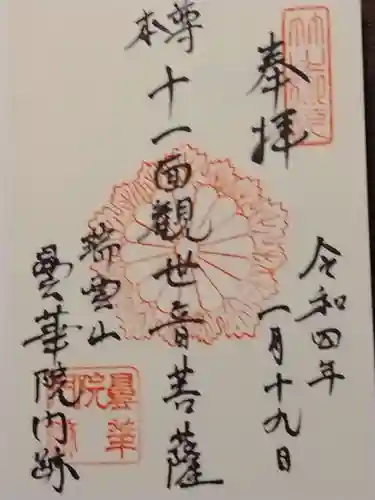 奉拝
令和四年
一月十九日
本尊
十一面観世音菩薩
瑞雲山
曇華院内跡
曇華
院